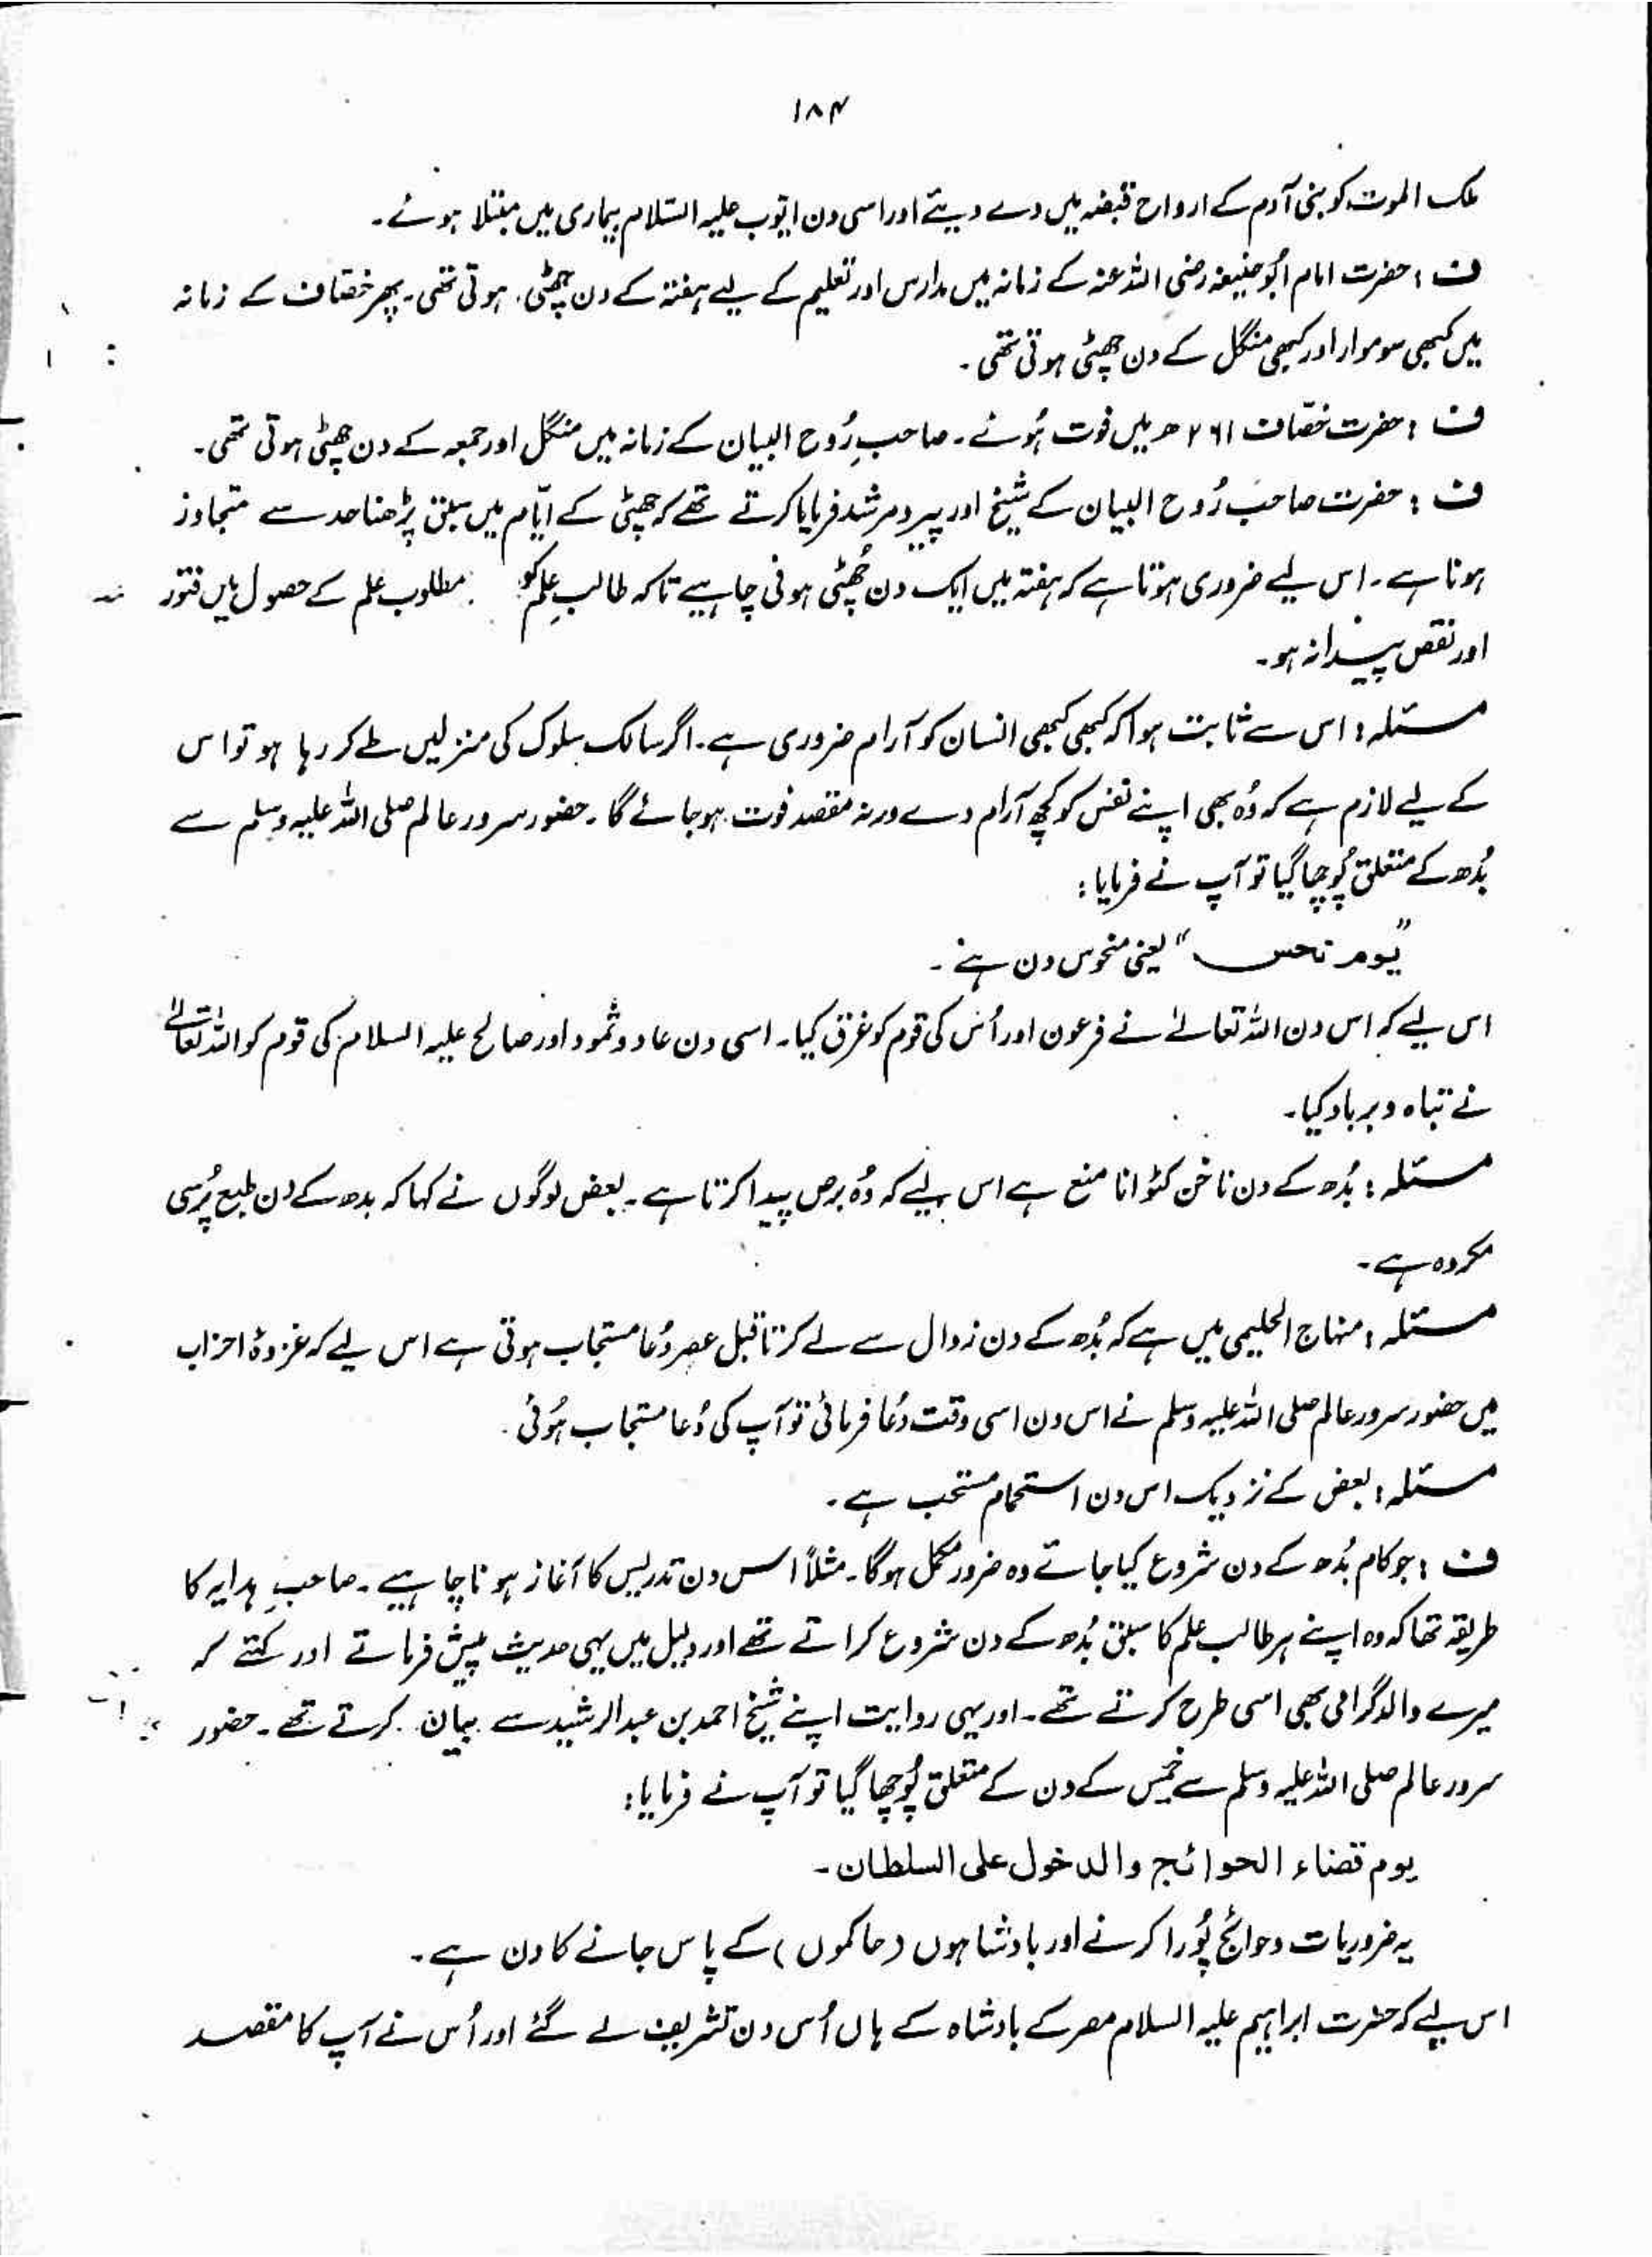 ۱۸۴
ملک الموت کو بنی آدم کے ارواح قبضہ میں دے دیئے اور اسی دن ایّوب علیہ السّلام بیماری میں مبتلا ہوئے۔
ف : حضرت امام ابُو حنیفہ رضی اللہ عنہ کے زمانہ میں مدارس اور تعلیم کے لیے ہفتہ کے دن چھٹی ہوتی تھی۔ پھر خصّاف کے زمانہ
میں کبھی سوموار اور کبھی منگل کے دن چھٹی ہوتی تھی۔
ف : حضرت خصّاف ۲۶۱ ھ میں فوت ہُوئے۔ صاحبِ رُوح البیان کے زمانہ میں منگل اور جمعہ کے دن چھٹی ہوتی تھی۔
ف : حضرت صاحب رُوح البیان کے شیخ اور پیر و مرشد فرمایا کرتے تھے کہ چھٹی کے ایّام میں سبق پڑھنا حد سے متجاوز
ہونا ہے۔ اس لیے ضروری ہوتا ہے کہ ہفتہ میں ایک دن چھُٹی ہونی چاہیے تاکہ طالبِ علم کو مطلوب علم کے حصول میں فتور
اور نقص پیدا نہ ہو۔
مسئلہ : اس سے ثابت ہوا کہ کبھی کبھی انسان کو آرام ضروری ہے۔ اگر سالک سلوک کی منزلیں طے کر رہا ہو تو اس
کے لیے لازم ہے کہ وُہ بھی اپنے نفس کو کچھ آرام دے ورنہ مقصد فوت ہو جائے گا۔ حضور سرور عالم صلی اللہ علیہ وسلم سے
بُدھ کے متعلق پُوچھا گیا تو آپ نے فرمایا :
”یوم نحس“ یعنی منحوس دن ہے۔
اس لیے کہ اس دن اللہ تعالےٰ نے فرعون اور اُس کی قوم کو غرق کیا۔ اسی دن عاد و ثمود اور صالح علیہ السلام کی قوم کو اللہ تعالےٰ
نے تباہ و برباد کیا۔
مسئلہ : بُدھ کے دن ناخن کٹوانا منع ہے اس لیے کہ وُہ برص پیدا کرتا ہے۔ بعض لوگوں نے کہا کہ بدھ کے دن طبع پُرسی
مکروہ ہے۔
مسئلہ : منہاج الحلیمی میں ہے کہ بُدھ کے دن زوال سے لے کر تا قبل عصر دُعا مستجاب ہوتی ہے اس لیے کہ غزوۂ احزاب
میں حضور سرور عالم صلی اللہ علیہ وسلم نے اس دن اسی وقت دُعا فرمائی تو آپ کی دُعا مستجاب ہُوئی۔
مسئلہ : بعض کے نزدیک اس دن استحمام مستحب ہے۔
ف : جو کام بُدھ کے دن شروع کیا جائے وہ ضرور مکمل ہوگا۔ مثلاً اس دن تدریس کا آغاز ہونا چاہیے۔ صاحبِ ہدایہ کا
طریقہ تھا کہ وہ اپنے ہر طالب علم کا سبق بُدھ کے دن شروع کراتے تھے اور دلیل میں یہی حدیث پیش فرماتے اور کہتے کہ
میرے والد گرامی بھی اسی طرح کرتے تھے۔ اور یہی روایت اپنے شیخ احمد بن عبدالرشید سے بیان کرتے تھے۔ حضور
سرور عالم صلی اللہ علیہ وسلم سے خمیس کے دن کے متعلق پُوچھا گیا تو آپ نے فرمایا :
یوم قضاء الحوائج والدخول علی السلطان۔
یہ ضروریات و حوائج پُورا کرنے اور بادشاہوں (حاکموں) کے پاس جانے کا دن ہے۔
اس لیے کہ حضرت ابراہیم علیہ السلام مصر کے بادشاہ کے ہاں اُس دن تشریف لے گئے اور اُس نے آپ کا مقصد